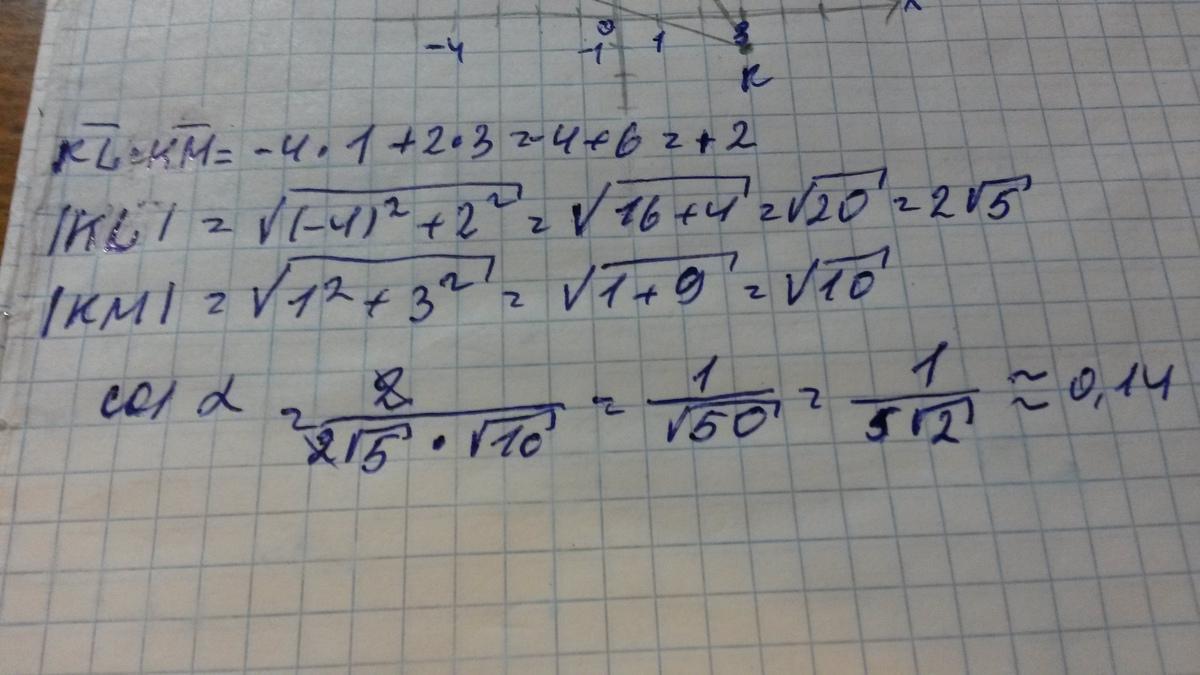 x
-4 -1 0 1 3
K
KL · KM = -4 · 1 + 2 · 3 = -4 + 6 = +2
|KL| = √((-4)² + 2²) = √(16 + 4) = √20 = 2√5
|KM| = √(1² + 3²) = √(1 + 9) = √10
cos α = 2/(2√5 · √10) = 1/√50 = 1/(5√2) ≈ 0,14